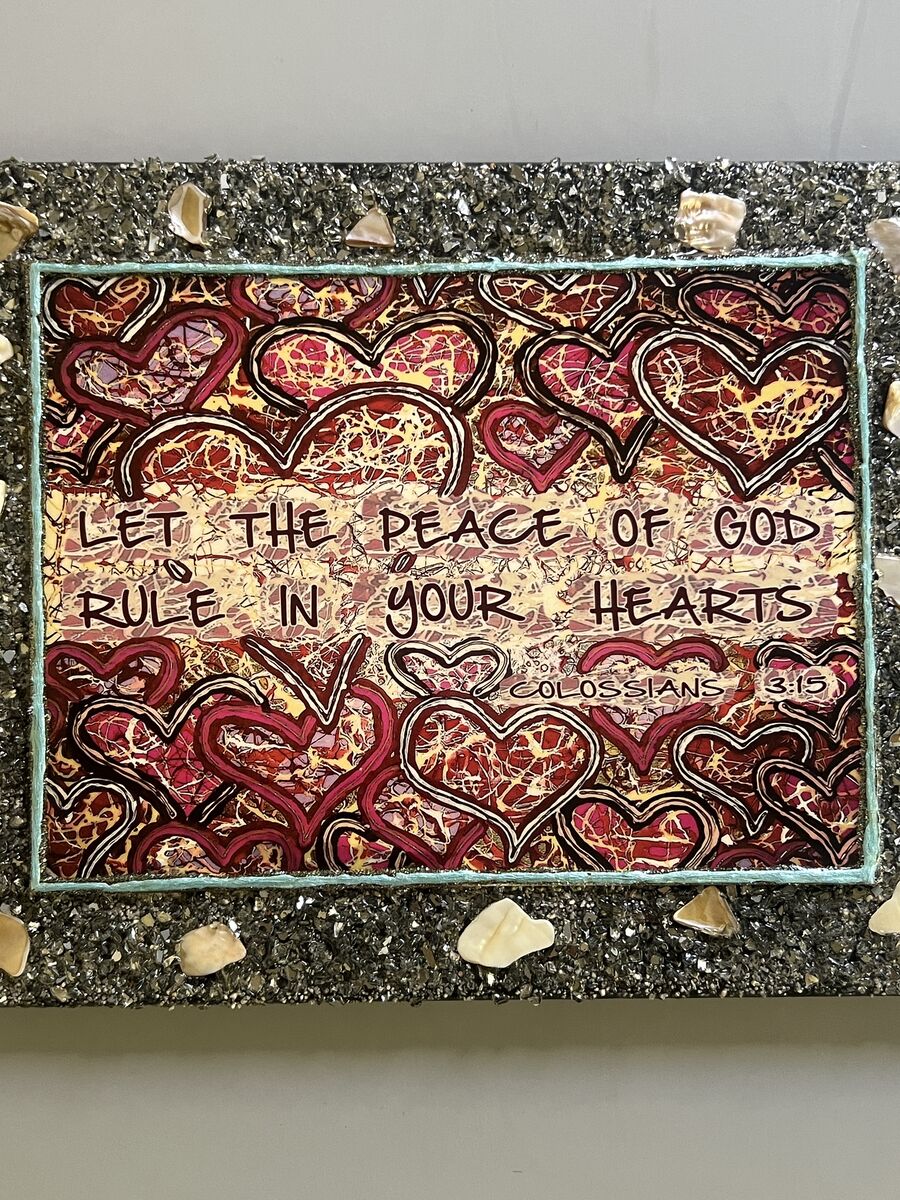 LET THE PEACE OF GOD
RULE IN YOUR HEARTS
COLOSSIANS 3:15